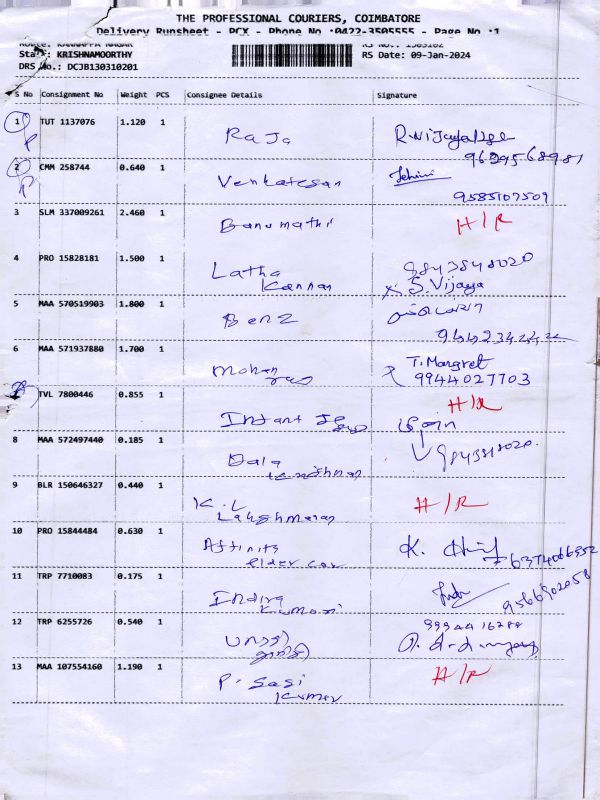 THE PROFESSIONAL COURIERS, COIMBATORE
Delivery Runsheet - PCX - Phone No :0422-3505555 - Page No :1
Route: KANNAPPA NAGAR RS No.: 1303102
Staff: KRISHNAMOORTHY RS Date: 09-Jan-2024
DRS No.: DCJB130310201
S No Consignment No Weight PCS Consignee Details Signature
1 TUT 1137076 1.120 1 Raja
9629568981
2 CMM 258744 0.640 1 Venkatesan
9585107509
3 SLM 337009261 2.460 1 Banumathi H/R
4 PRO 15828181 1.500 1 Latha 9843848020
Kannan S. Vijaya
5 MAA 570519903 1.800 1 Benz
6 MAA 571937880 1.700 1 Mohan T. Margret
9944027703
TVL 7800446 0.855 1 Infant H/R
8 MAA 572497440 0.185 1 Bala
9 BLR 150646327 0.440 1 K.L H/R
Lakshmanan
10 PRO 15844484 0.630 1 Affinity K.
elder care 6374066952
11 TRP 7710083 0.175 1 Indira
Kumari 9566902058
12 TRP 6255726 0.540 1
13 MAA 107554160 1.190 1 P. Sasi H/R
Kumar